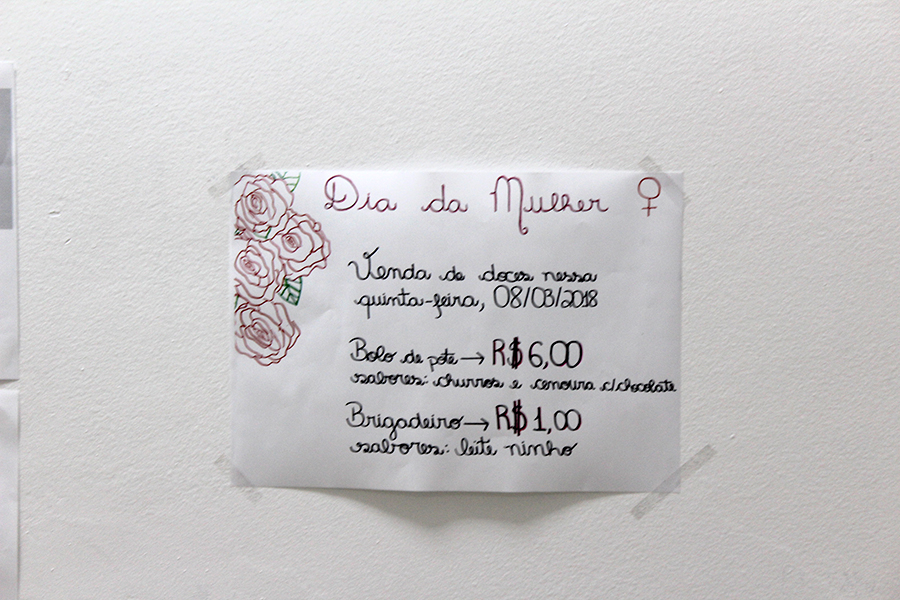 Dia da Mulher ♀
Venda de doces nessa
quinta-feira, 08/03/2018
Bolo de pote → R$ 6,00
sabores: churros e cenoura c/chocolate
Brigadeiro → R$ 1,00
sabores: leite ninho